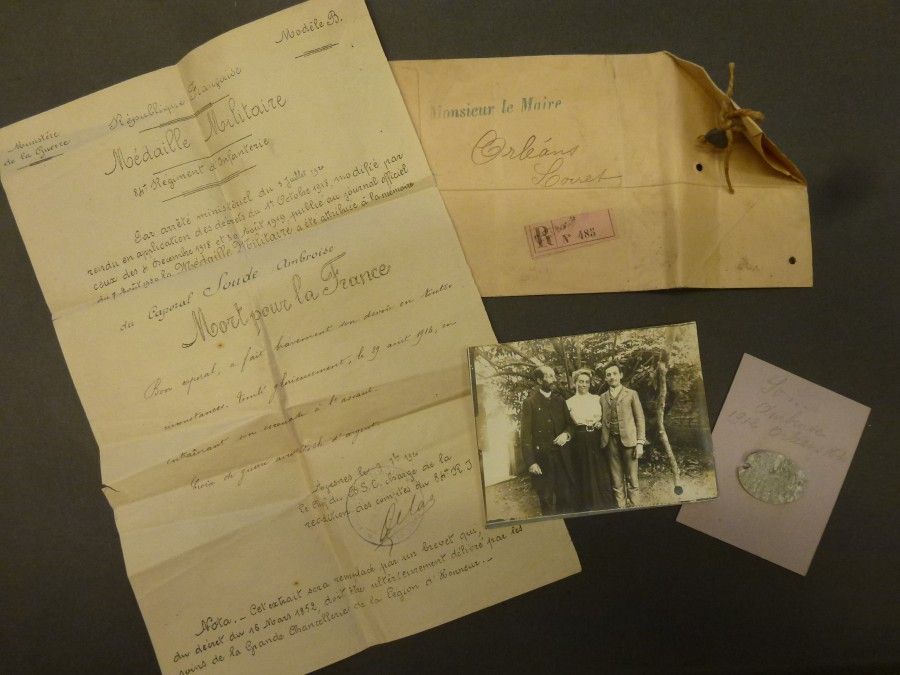 Modèle B.
République Française
Ministère
de la Guerre
Médaille Militaire
84e Régiment d'Infanterie
Par arrêté ministériel du 3 juillet 1920
rendu en application des décrets du 1er Octobre 1918, modifié par
ceux des Décembre 1918 et Août 1919, publié au journal officiel
du Août 1920 la Médaille Militaire a été attribuée à la mémoire
du Caporal Soude Ambroise
Mort pour la France
Bon caporal, a fait bravement son devoir en toutes
circonstances. Tombé glorieusement, le 29 août 1914, en
entraînant son escouade à l'assaut.
Croix de guerre avec étoile d'argent.
Avesnes, le
le du C.S.C. chargé de la
reddition des comptes du 84e R.I
Nota. - Cet extrait sera remplacé par un brevet qui,
du décret du 16 Mars 1852, doit être ultérieurement délivré par les
soins de la Grande Chancellerie de la Légion d'Honneur. -
Monsieur le Maire
Orléans
Loiret
R
N° 485